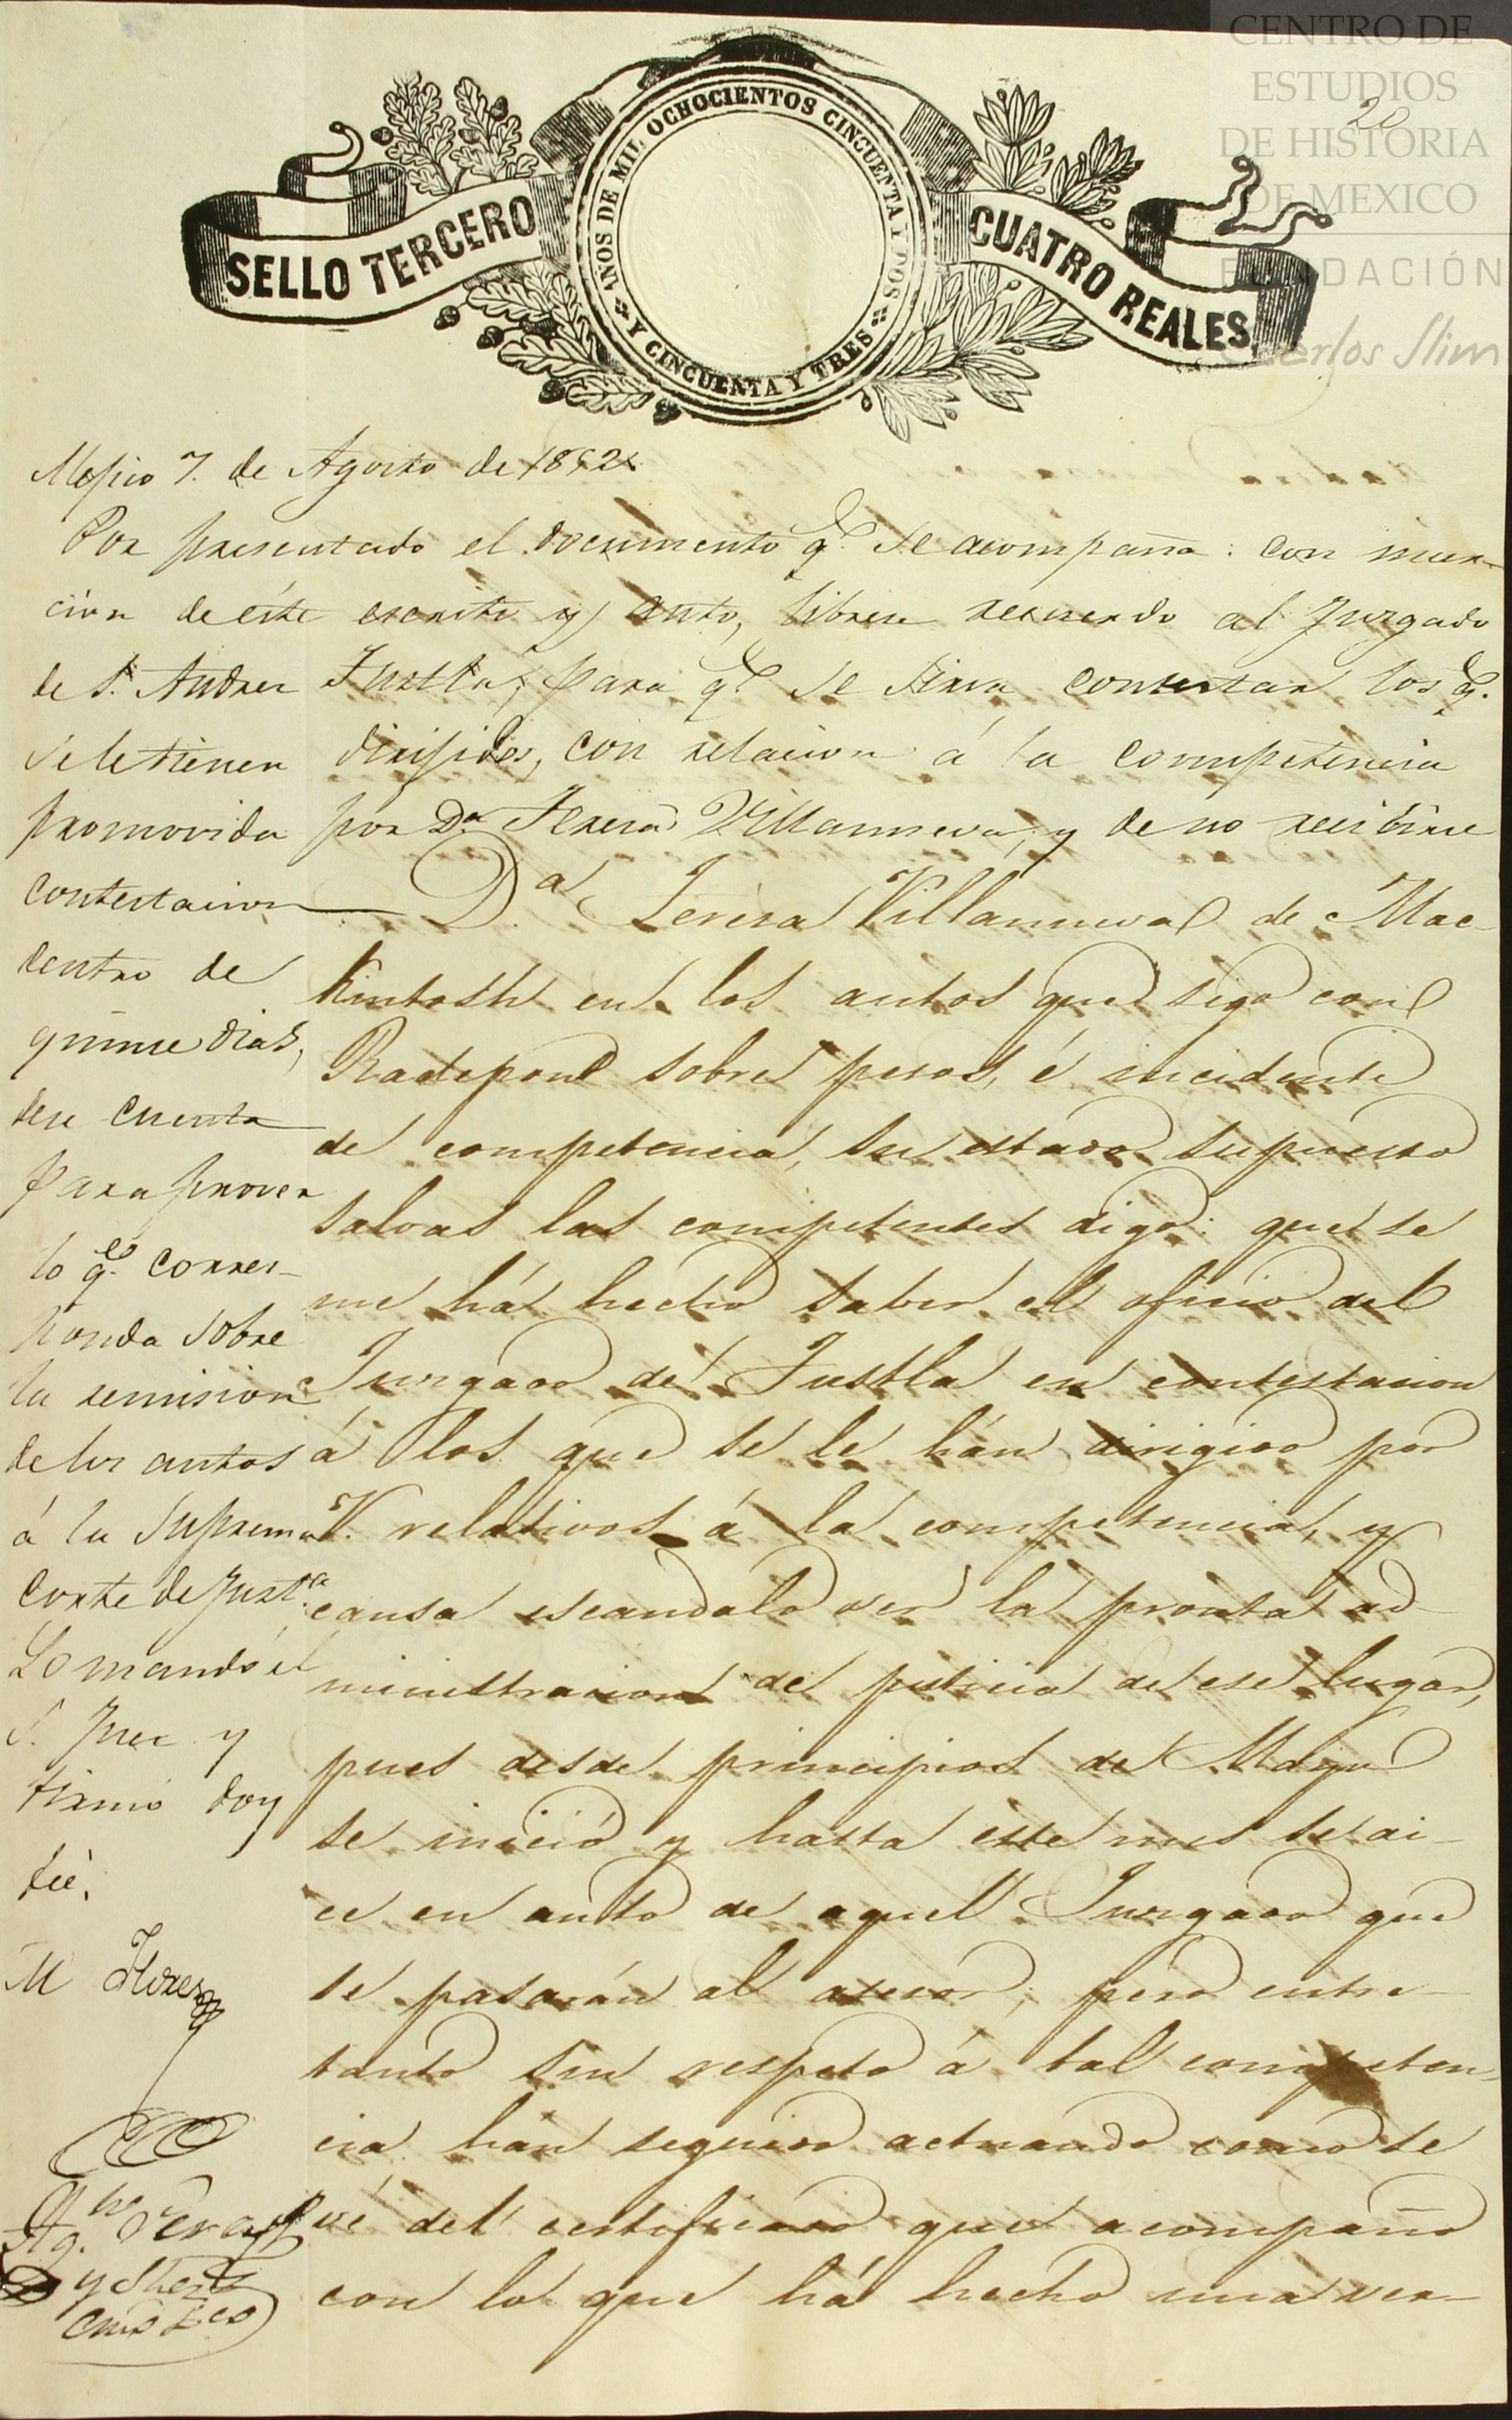 CENTRO DE
ESTUDIOS
DE HISTORIA
DE MEXICO
FUNDACIÓN
Carlos Slim
20
SELLO TERCERO
AÑOS DE MIL OCHOCIENTOS CINCUENTA Y DOS
Y CINCUENTA Y TRES
CUATRO REALES
Mejico 7. de Agosto de 1852.
Por presentado el documento q.e se acompaña: con inser-
cion de éste escrito y auto, librese recuerdo al Juzgado
de S. Andres Tuxtla, para q.e se sirva contestar los q.e
se le tienen dirijidos, con relacion á la competencia
promovida por D.a Teresa Villanueva, y de no recibirse
contestacion
dentro de
quince dias,
dese cuenta
para proveer
lo q.e corres-
ponda sobre
la remision
de los autos
á la Suprema
Corte de Just.a
Lo mandó el
S. Juez y
firmó doy
feé.
M Flores
D.a Teresa Villanueva de Mac-
kintosh en los autos que sigo con
Radepont sobre pesos, é incidente
de competencia, su estado supuesto
salvas las competentes digo: que se
me há hecho saber el oficio del
Juzgado de Tustla en contestacion
á los que se le hán dirigido por
V. relativos á la competencia, y
causa escandalo ver la pronta ad-
ministracion de justicia de ese lugar,
pues desde principios de Mayo
se inició y hasta éste mes se di-
ce en auto de aquel Juzgado que
se pasarán al asesor; pero entre-
tanto sin respeto á tal competen-
cia hán seguido actuando como se
vé del certificado que acompaño
con lo que há hecho una ver-